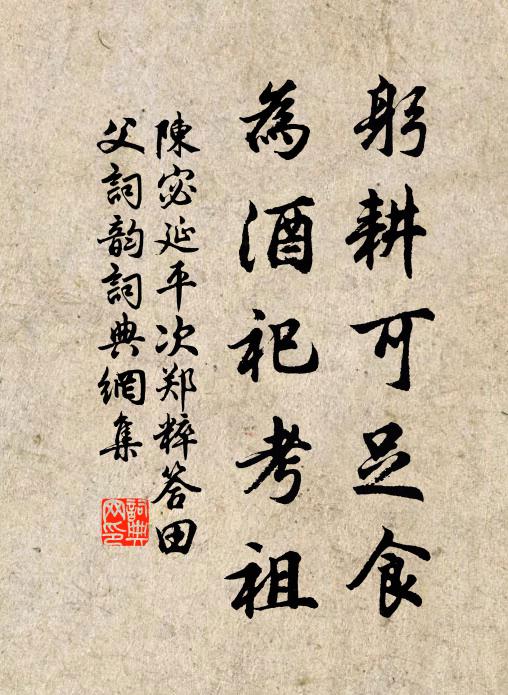 躬耕可足食
為酒祀考祖
陳宓延平次郑粹答田
父詞韵詞典網集
詞典网印